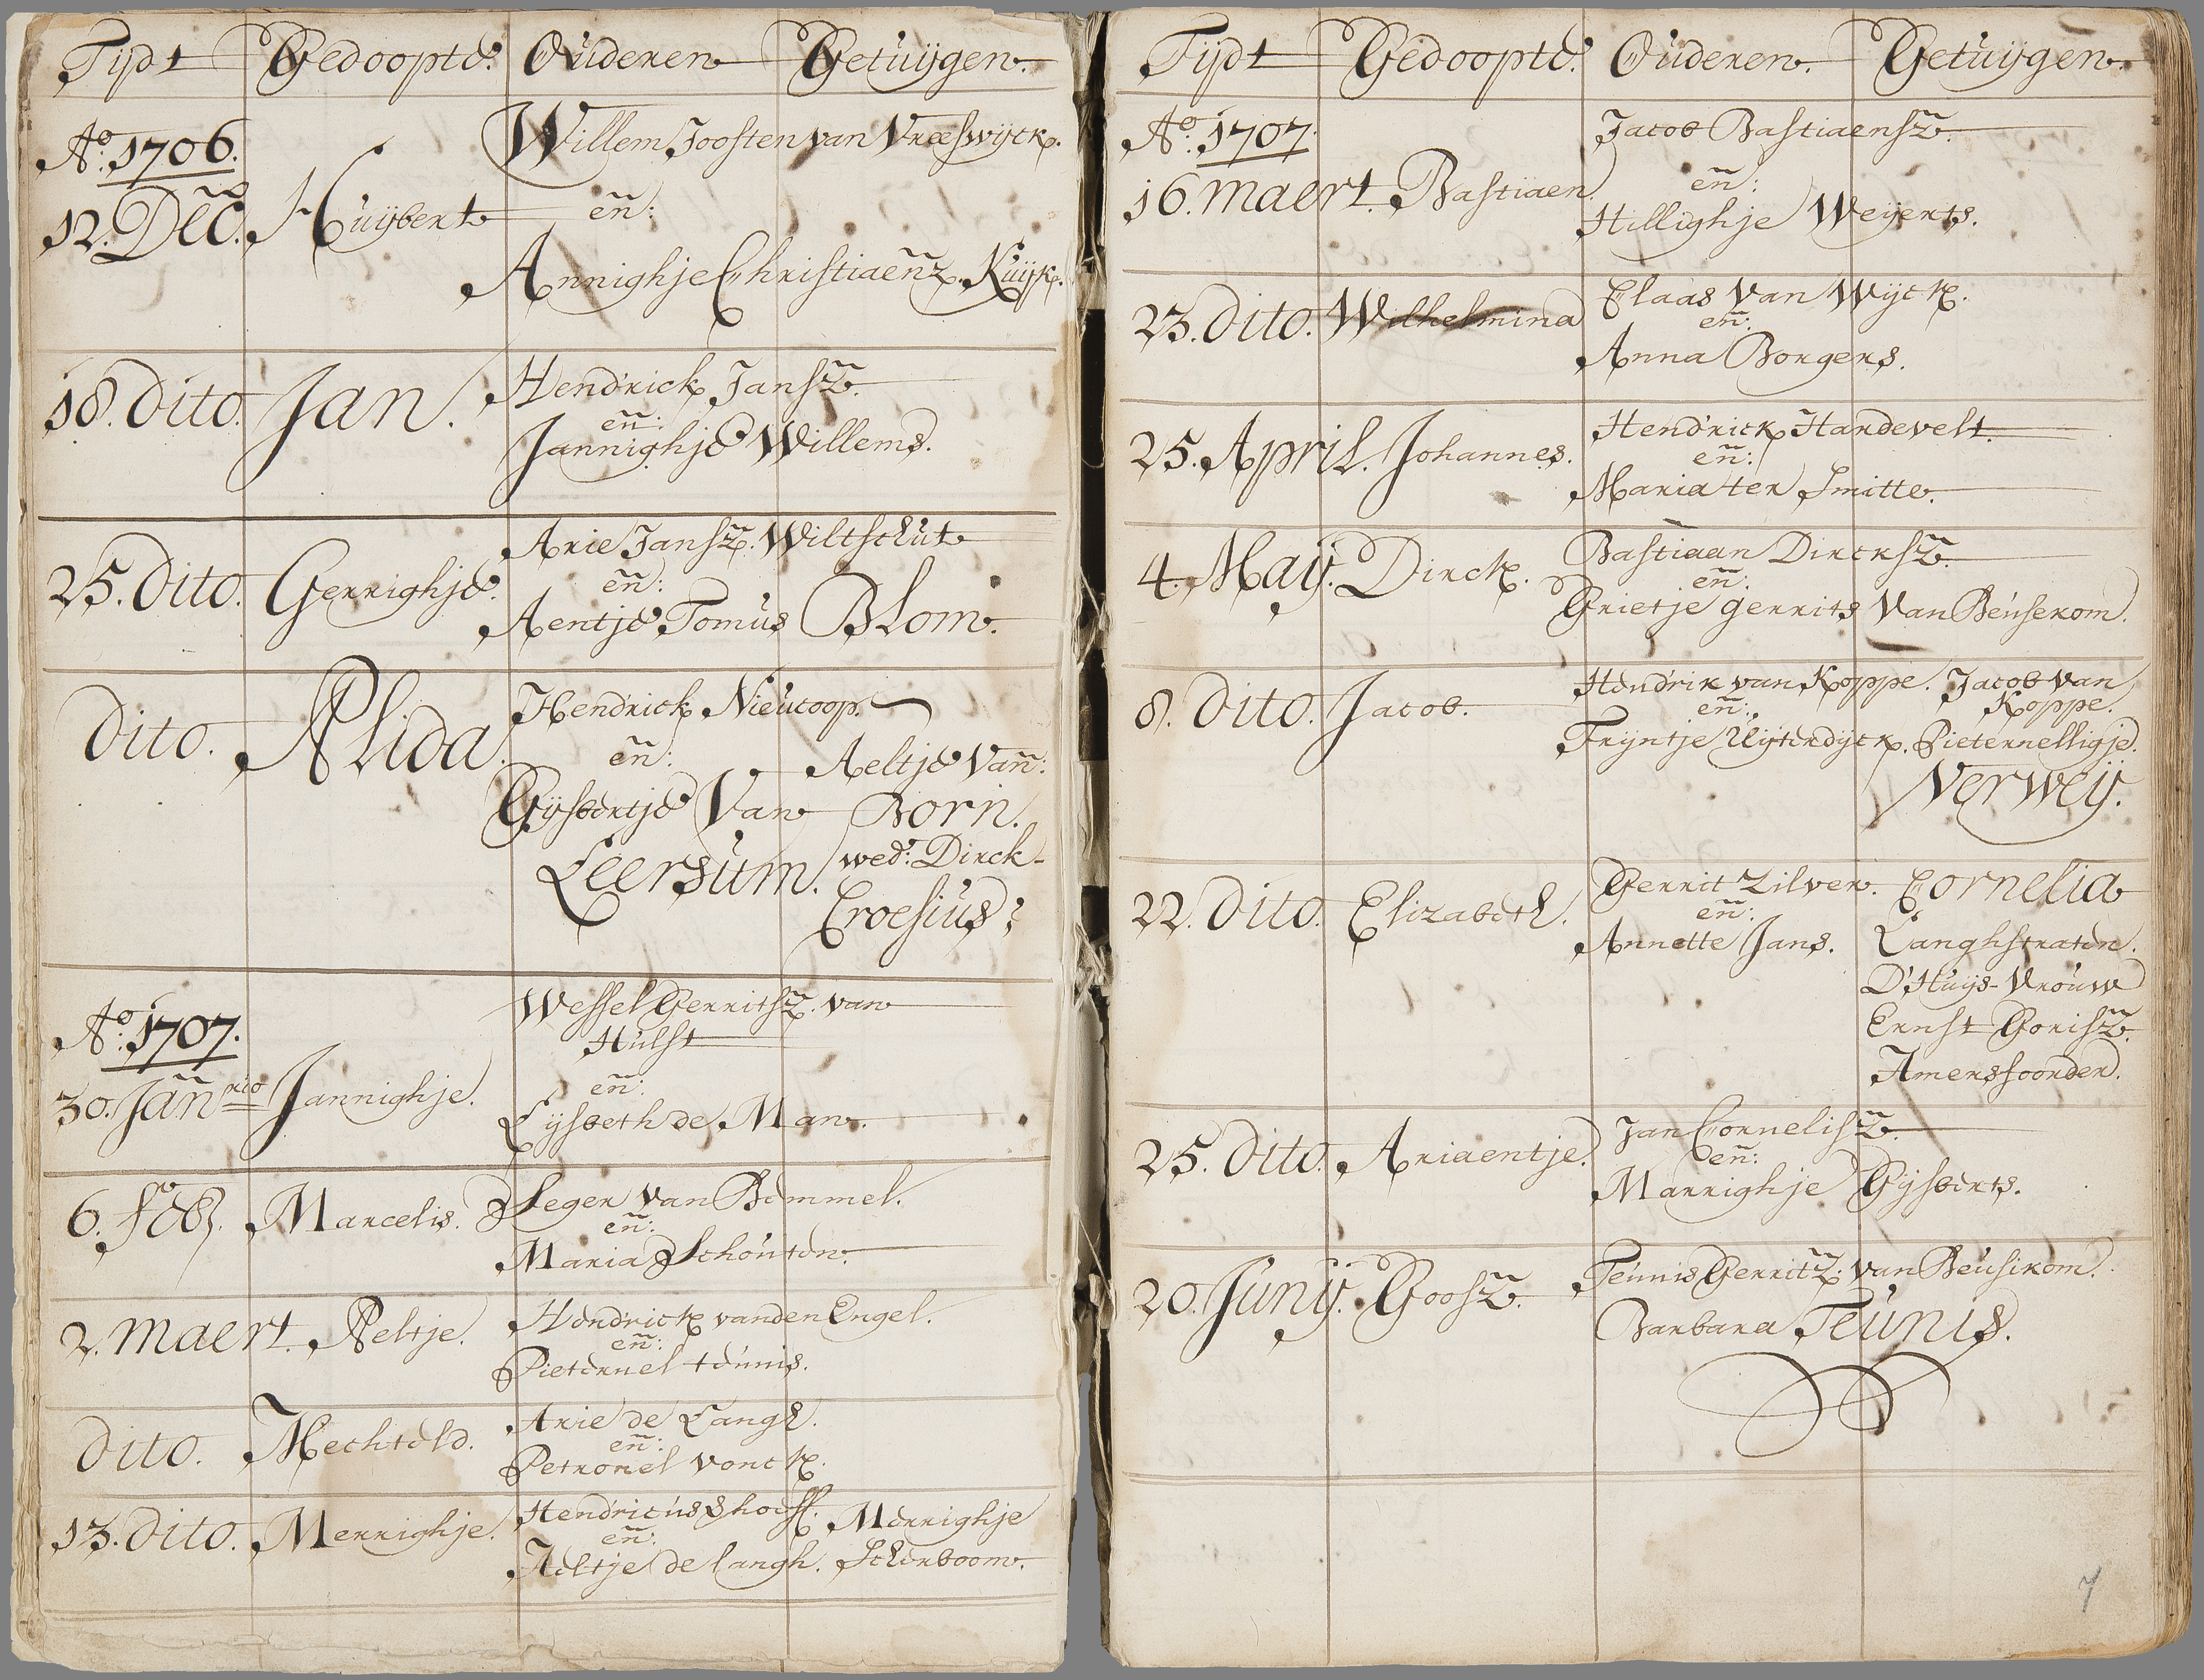 Tijdt Gedoopte. Ouderen Getuijgen.
Ao. 1706. Willem Joosten van Vreeswijck.
12. Dec. Huijbert en:
Annighje Christiaenz. Kuijk.
18. dito. Jan. Hendrick Jansz.
en:
Jannighje Willems.
25. dito. Gerrighje. Arie Jansz. Wiltschut
en:
Aentje Tomus Blom.
dito. Alida. Hendrick Nieucoop.
en: Aeltje Van:
Gijsbertje Van Born.
Leersum. wed: Dirck
Croesius:
Ao. 1707. Wessel Gerritsz. van
Hulst
30. Jan rio Jannighje. en:
Lijsbeth de Man.
6. Feb. Marcelis. Seger van Bemmel.
en:
Maria Schouten.
2. maert. Aeltje. Hendrick vanden Engel.
en:
Pieternel teunis.
dito. Mechteld. Arie de Langh.
en:
Petronel vonck.
13. dito. Merrighje. Hendricus shoeff. Merrighje
en:
Aeltje de langh. Scherboom.
Tijdt Gedoopte. Ouderen. Getuijgen.
Ao. 1707. Jacob Bastiaensz.
16. maert. Bastiaen. en:
Hillighje Weijerts.
23. dito. Wilhelmina Claas van Wijck.
en:
Anna Borgers.
25. April. Johannes. Hendrick Handevelt.
en:
Maria ter Smitte.
4. Maij. Dirck. Bastiaan Dircksz.
en:
Grietje gerrits Van Beusekom.
8. dito. Jacob. Hendrik van Koppe. Jacob van
en: Koppe.
Trijntje Uijterdijck. Pieternelligje.
Verweij.
22. dito. Elizabeth. Gerrit Zilver. Cornelia
en:
Annette Jans. Langhstraten.
D'Huijs-Vrouw
Ernst Gorisz.
Amersfoorder.
25. dito. Ariaentje. Jan Cornelisz.
en:
Marrighje Gijsberts.
20. Junij. Goosz. Teunis Gerritz. van Beusikom.
Barbara Teunis.
7